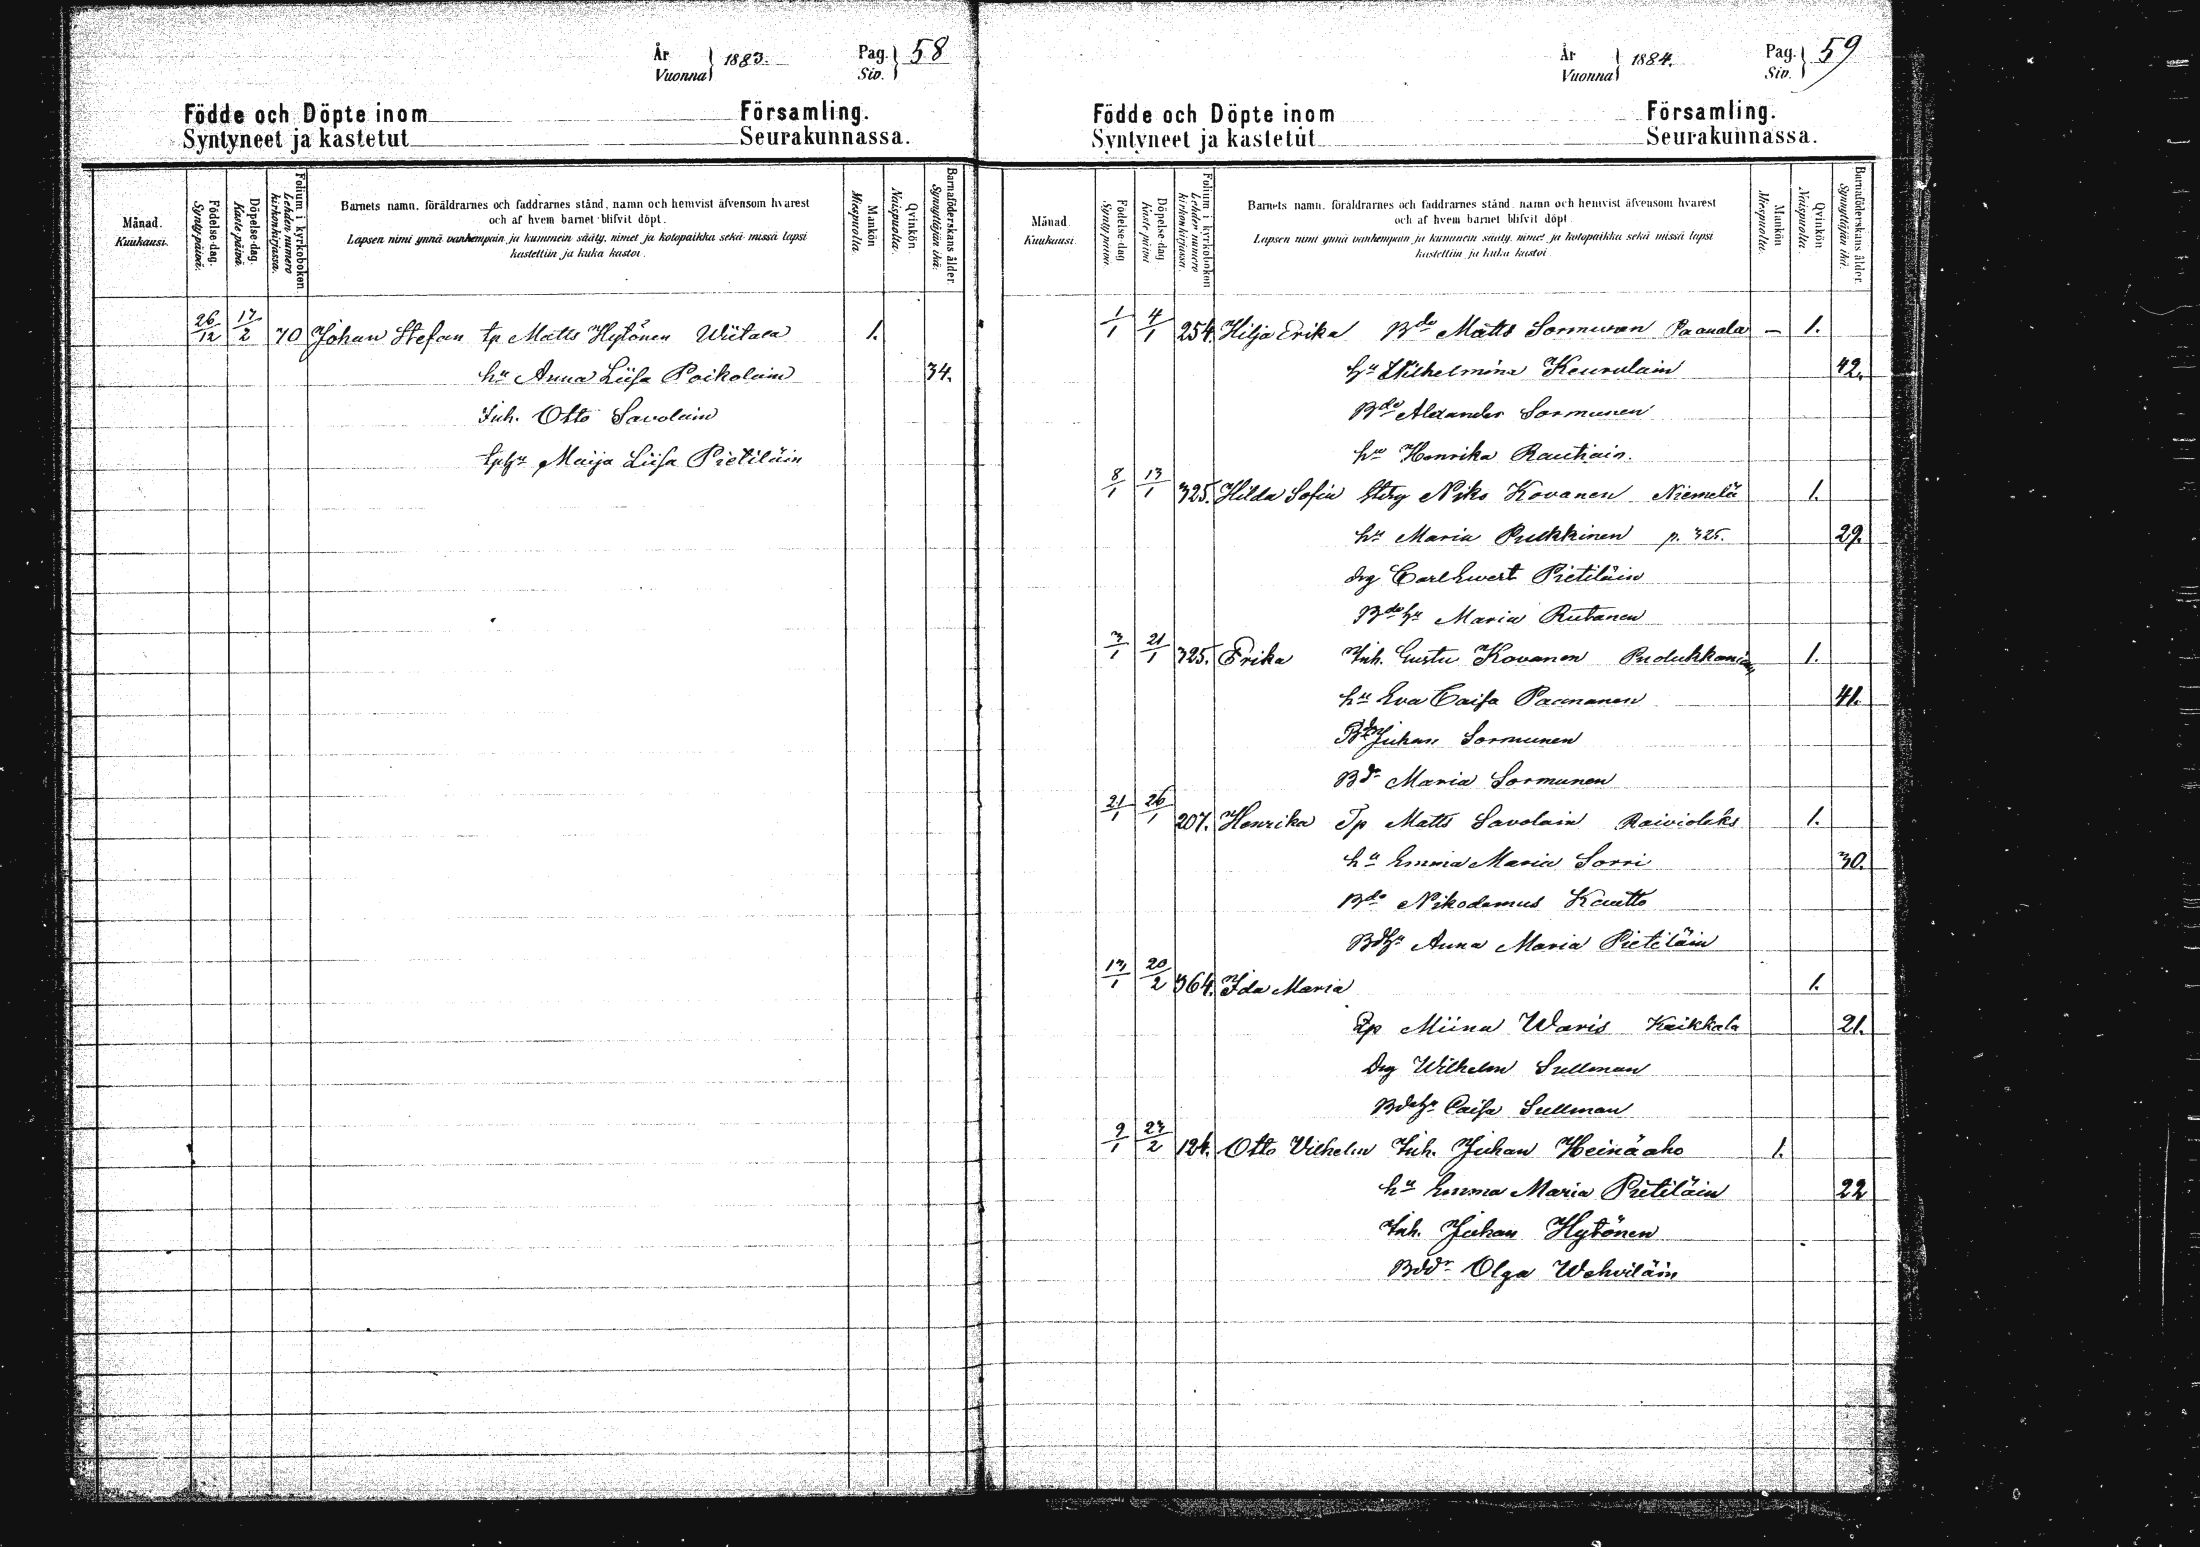 År
Vuonna } 1883. Pag.
Siv. } 58
Födde och Döpte inom Församling.
Syntyneet ja kastetut Seurakunnassa.
Månad.
Kuukausi.
Födelse-dag.
Synty-päivä.
Döpelse-dag.
Kaste-päivä.
Folium i kyrkoboken.
Lehden numero kirkonkirjassa.
Barnets namn, föräldrarnes och faddrarnes stånd, namn och hemvist äfvensom hvarest
och af hvem barnet blifvit döpt.
Lapsen nimi ynnä vanhempain ja kummein sääty, nimet ja kotopaikka sekä missä lapsi
kastettiin ja kuka kastoi.
Mankön
Miespuolta.
Qvinkön.
Naispuolta.
Barnaföderskans ålder.
Synnyttäjän ikä.
26/12 17/2 70 Johan Stefan tp Matts Hytönen Wiitala 1.
hu Anna Liisa Poikolain 34.
Inh. Otto Savolain
tphu Maija Liisa Pietiläin
År
Vuonna } 1884. Pag.
Siv. } 59
Födde och Döpte inom Församling.
Syntyneet ja kastetut Seurakunnassa.
Månad.
Kuukausi.
Födelse-dag
Synty-päivä.
Döpelse-dag.
Kaste-päivä
Folium i kyrkoboken
Lehden numero kirkonkirjassa.
Barnets namn, föräldrarnes och faddrarnes stånd, namn och hemvist äfvensom hvarest
och af hvem barnet blifvit döpt.
Lapsen nimi ynnä vanhempain ja kummein sääty, nimet ja kotopaikka sekä missä lapsi
kastettiin ja kuka kastoi.
Mankön
Miespuolta.
Qvinkön
Naispuolta.
Barnaföderskans ålder.
Synnyttäjän ikä.
1/1 4/1 254. Hilja Erika Bde Matts Sormunen Paanala – 1.
hu Wilhelmina Keurulain 42.
Bde Alexander Sormunen
hu Henrika Rautiain.
8/1 13/1 325. Hilda Sofia Niks Kovanen Niemelä 1.
hu Maria Pulkkinen p. 325. 29.
drg Carl Ewert Pietiläin
Bdehu Maria Rutanen
3/1 21/1 325. Erika Inh. Gustu Kovanen 1.
hu Eva Caisa Paananen 41.
Juhan Sormunen
Bdr Maria Sormunen
21/1 26/1 207. Henrika Tp Matts Savolain 1.
hu Emma Maria Sorri 30.
Bde Nikodemus Kautto
Bdhu Anna Maria Pietiläin
13/1 20/2 364. Ida Maria 1.
Miina Waris Kaikkala 21.
Drg Wilhelm Sullman
Bdehu Caisa Sullman
9/1 23/2 124. Otto Vilhelm Inh. Juhan Heinäaho 1.
hu Emma Maria Pietiläin 22
Inh. Juhan Hytönen
Bddr Olga Wehviläin